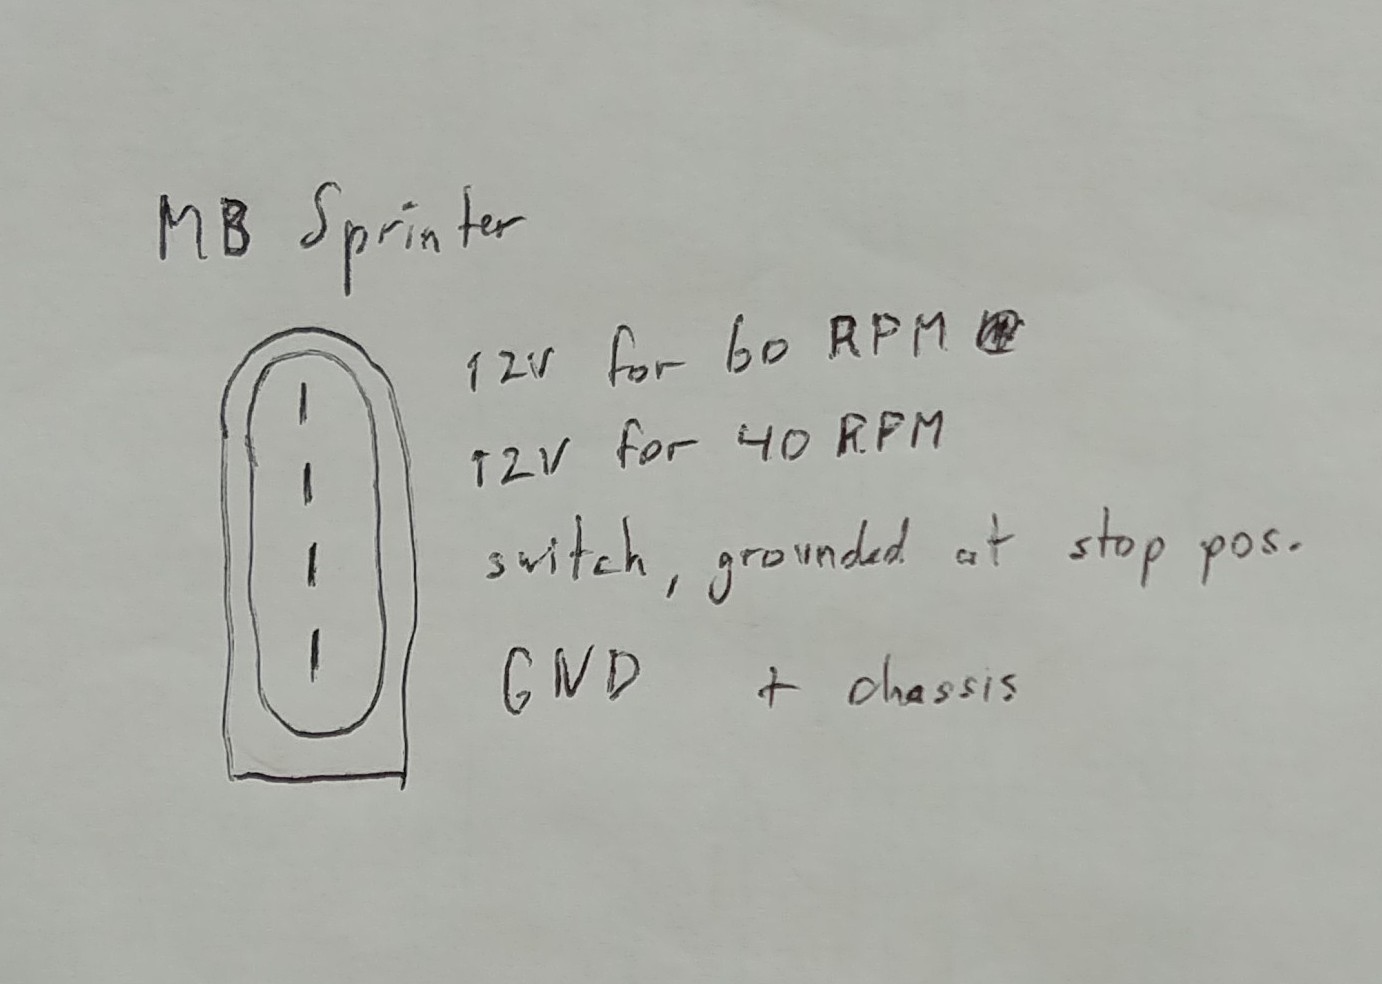 MB Sprinter
12V for 60 RPM
12V for 40 RPM
switch, grounded at stop pos.
GND + chassis